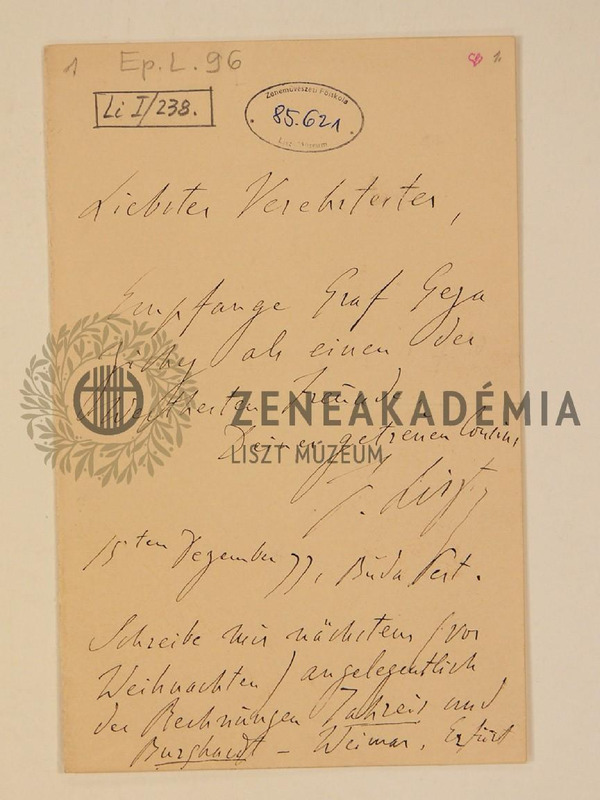 1
Ep. L. 96
1.
Li I/238.
Zeneművészeti Főiskola
85.621
Liszt Múzeum
Liebster Verehrtester,
Empfange Graf Geza
Zichy als einen der
werthesten Freunde
ZENEAKADÉMIA
Deines getreuen Cousins,
LISZT MÚZEUM
F. Liszt
15ten Dezember 77, Büda Pest.
Schreibe mir nächstens (vor
Weihnachten) angelegentlich
der Rechnüngen Jahreis und
Burghardt – Weimar, Erfürt